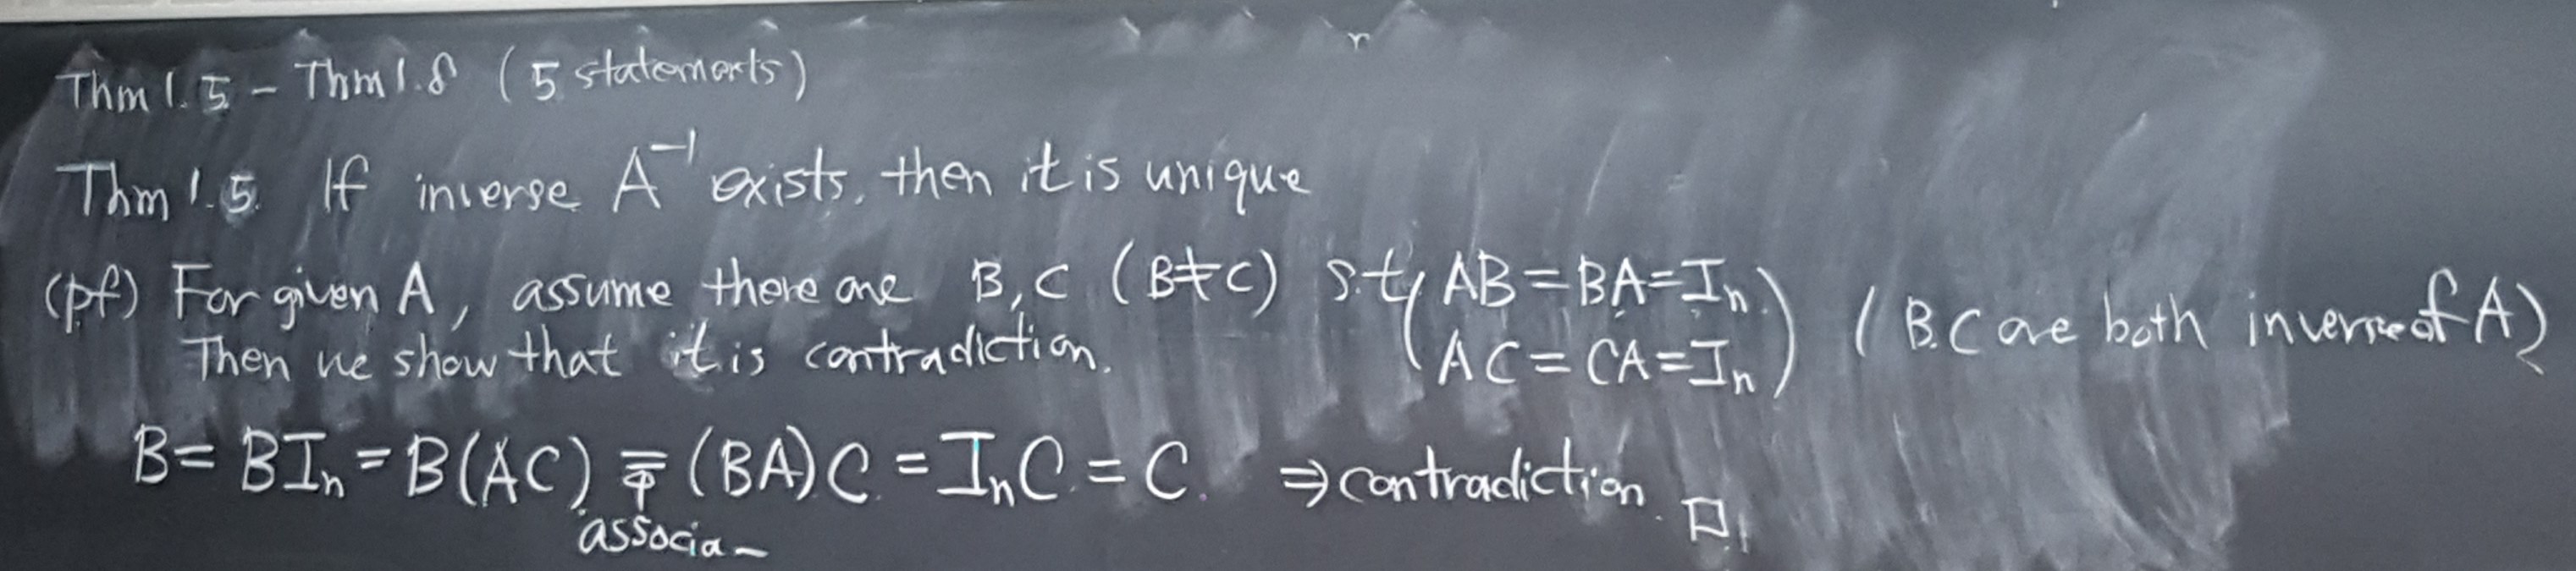 Thm 1.5 - Thm 1.8 (5 statements)
Thm 1.5. If inverse A⁻¹ exists, then it is unique
(pf) For given A, assume there are B, C (B≠C) s.t, (AB = BA = Iₙ.
AC = CA = Iₙ) (B.C are both inverse of A)
Then we show that it is contradiction.
B = BIₙ = B(AC) = (BA)C = IₙC = C. ⇒ contradiction. □
associa~